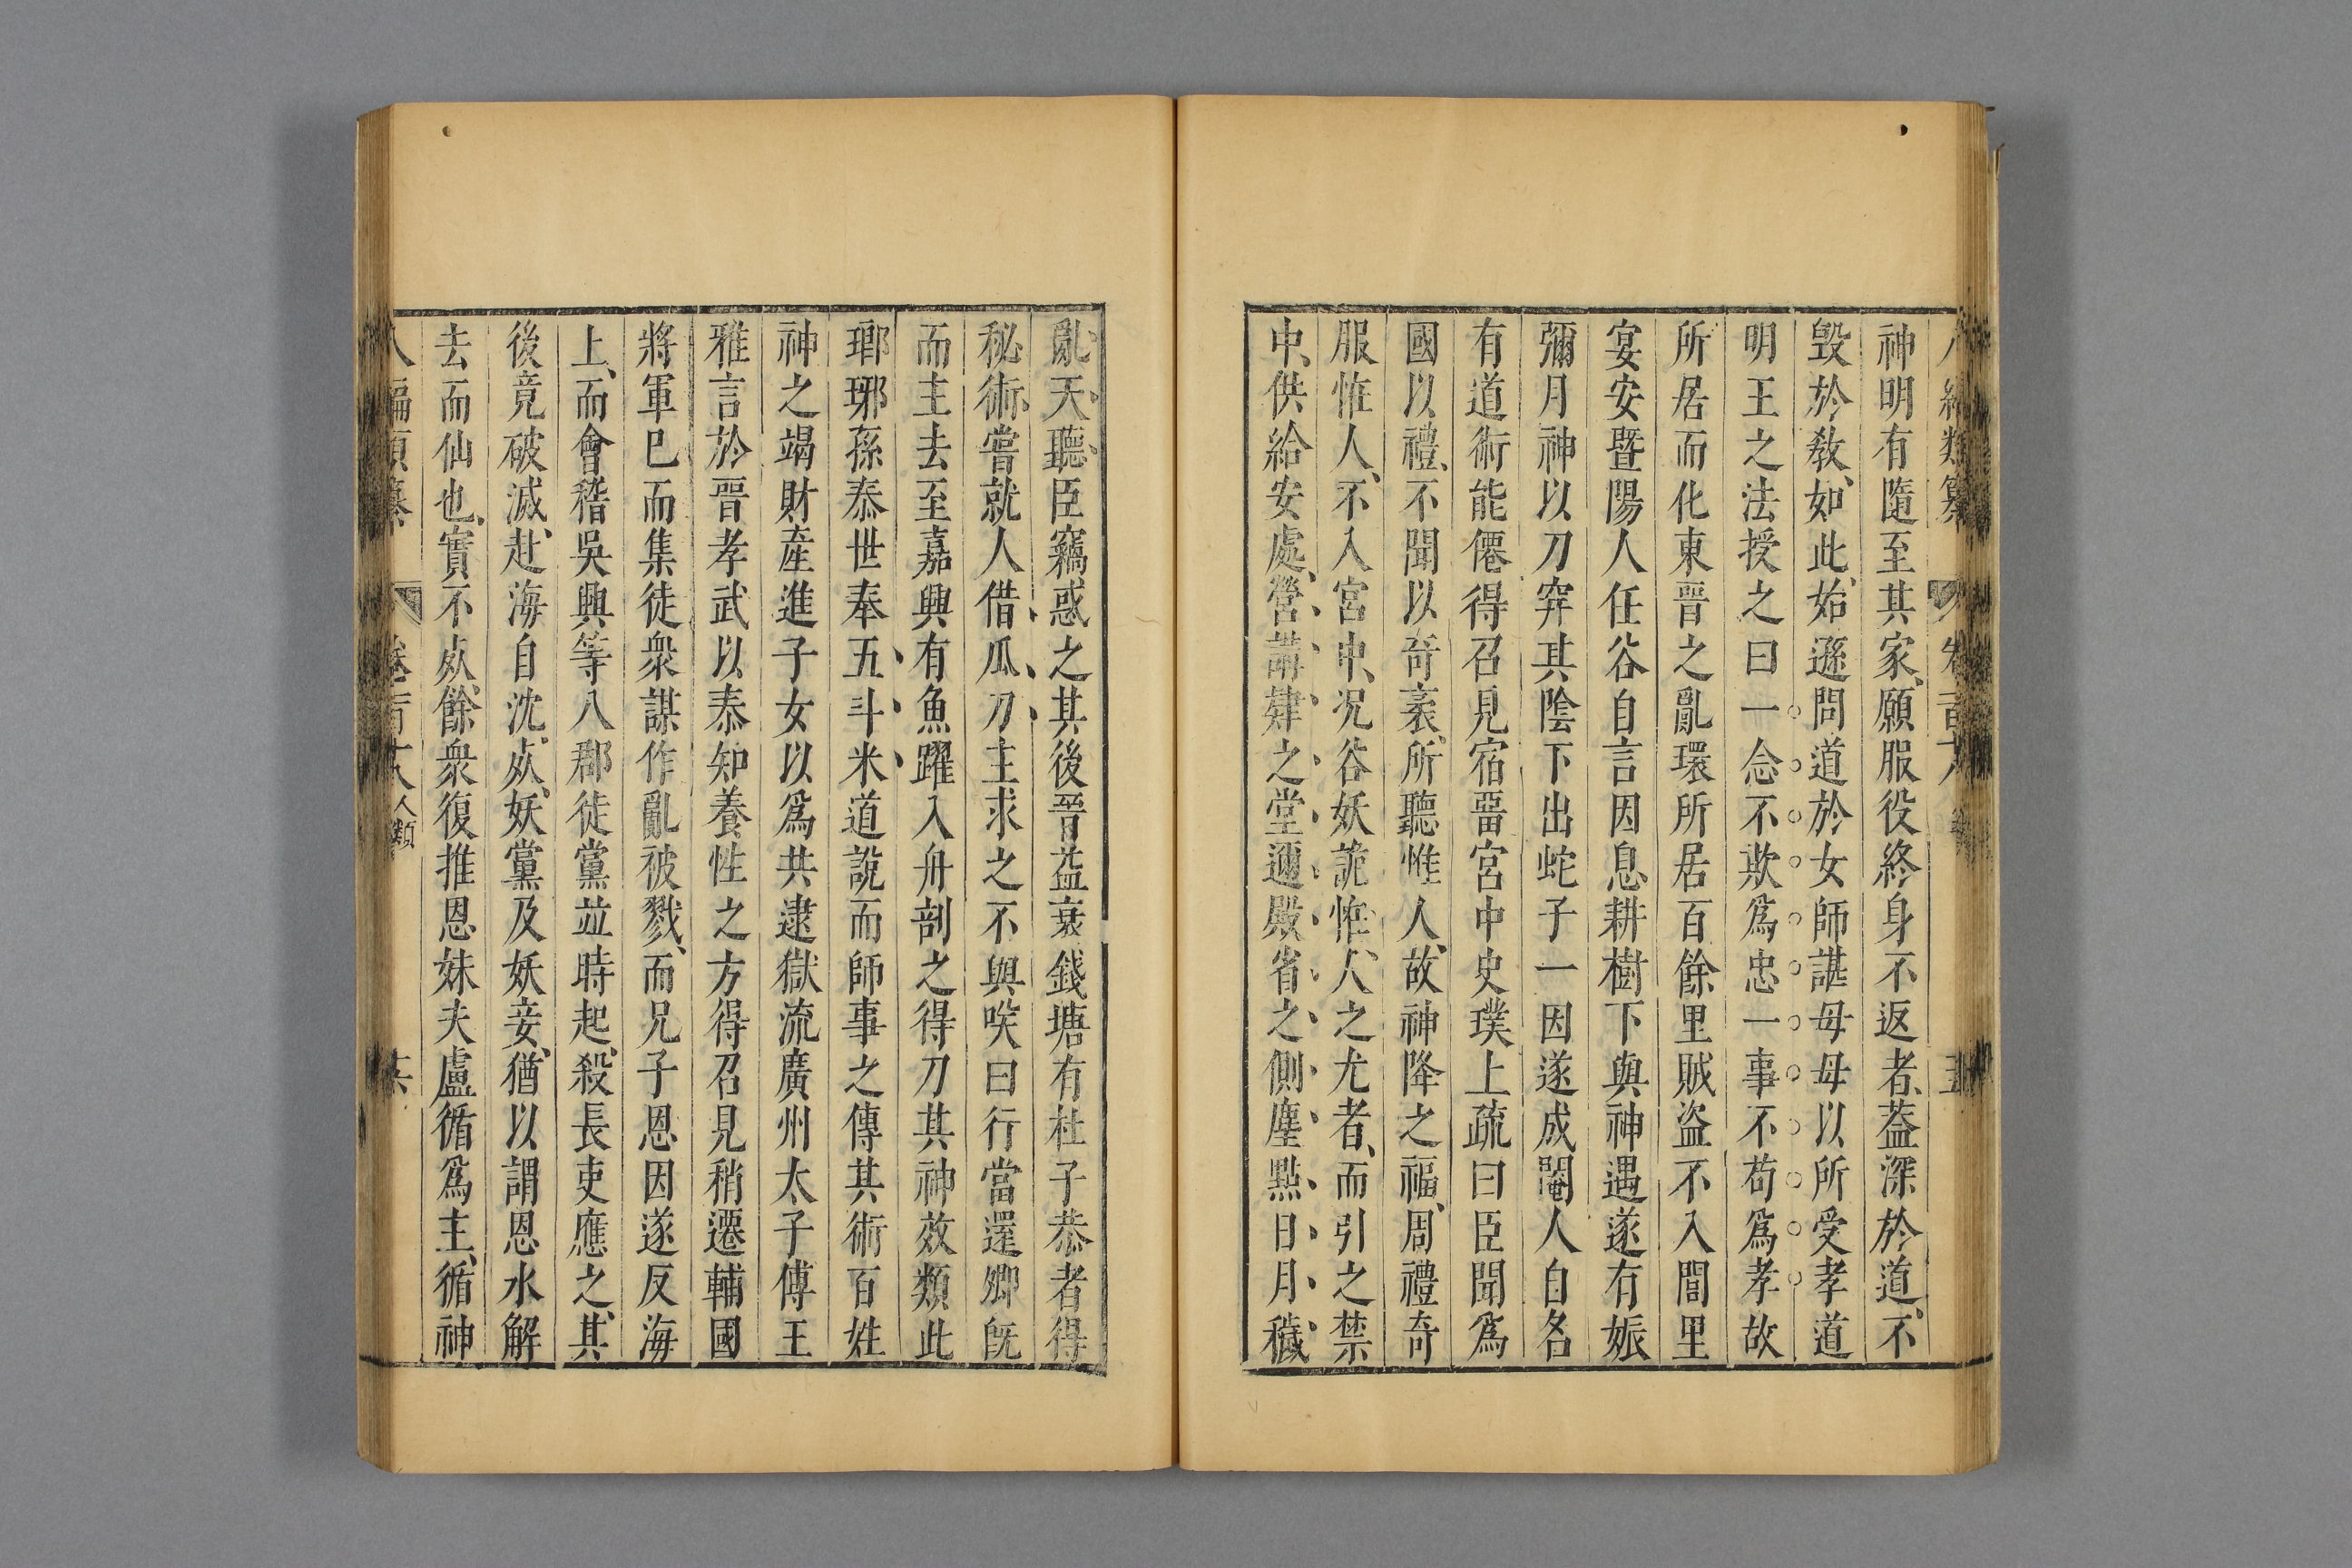 神明有隨至其家願服役終身不返者蓋深於道不
毀於敎如此始遜問道於女師諶母母以所受孝道
明王之法授之曰一念不欺爲忠一事不苟爲孝故
所居而化東晉之亂環所居百餘里賊盜不入閭里
宴安曁陽人任谷自言因息耕樹下與神遇遂有娠
彌月神以刀穽其陰下出蛇子一因遂成閹人自名
有道術能僊得召見宿畱宮中史璞上疏曰臣聞爲
國以禮不聞以奇袤所聽惟人故神降之福周禮奇
服恠人不入宮中况谷妖詭恠人之尤者而引之禁
中供給安處營講肄之堂邇殿省之側塵點日月穢
亂天聽臣竊惑之其後晉益衰錢塘有杜子恭者得
秘術嘗就人借瓜刀主求之不與咲曰行當還卿旣
而主去至嘉興有魚躍入舟剖之得刀其神效類此
瑯琊孫泰世奉五斗米道說而師事之傳其術百姓
神之竭財產進子女以爲共逮獄流廣州太子傅王
雅言於晉孝武以泰知養性之方得召見稍遷輔國
將軍巳而集徒衆謀作亂被戮而兄子恩因遂反海
上而會稽吳興等八郡徒黨並時起殺長吏應之其
後竟破滅赴海自沈死妖黨及妖妾猶以謂恩水解
去而仙也實不死餘衆復推恩妹夫盧循爲主循神
八編類纂 卷百十八 人類 十六